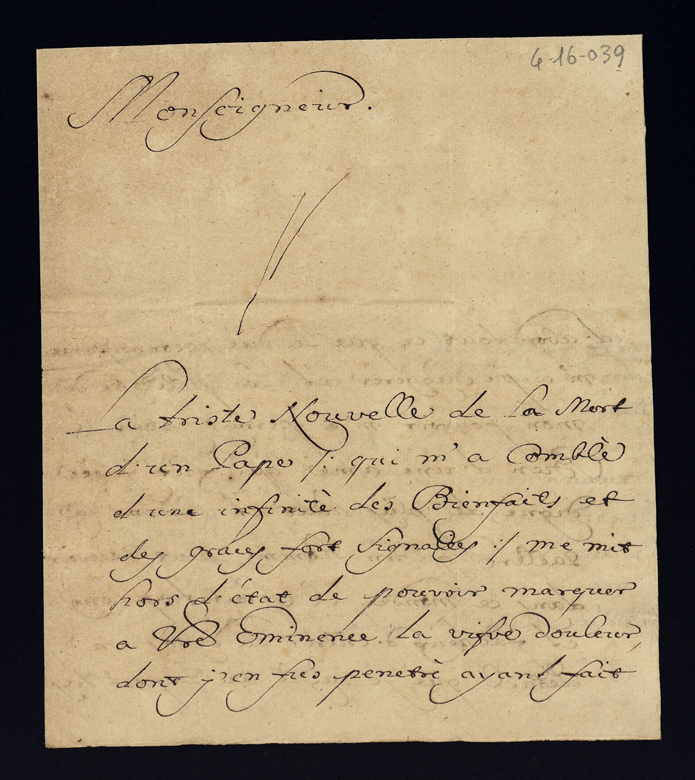 4-16-039
Monseigneur.
La triste Nouvelle de la Mort
d'un Pape /: qui m'a Comblè
d'une infinitè des Bienfaits et
des graces fort signalées :/ me mit
hors d'état de pouvoir marquer
a Vre Eminence la vifve douleur,
dont j'en fus penetrè ayant fait